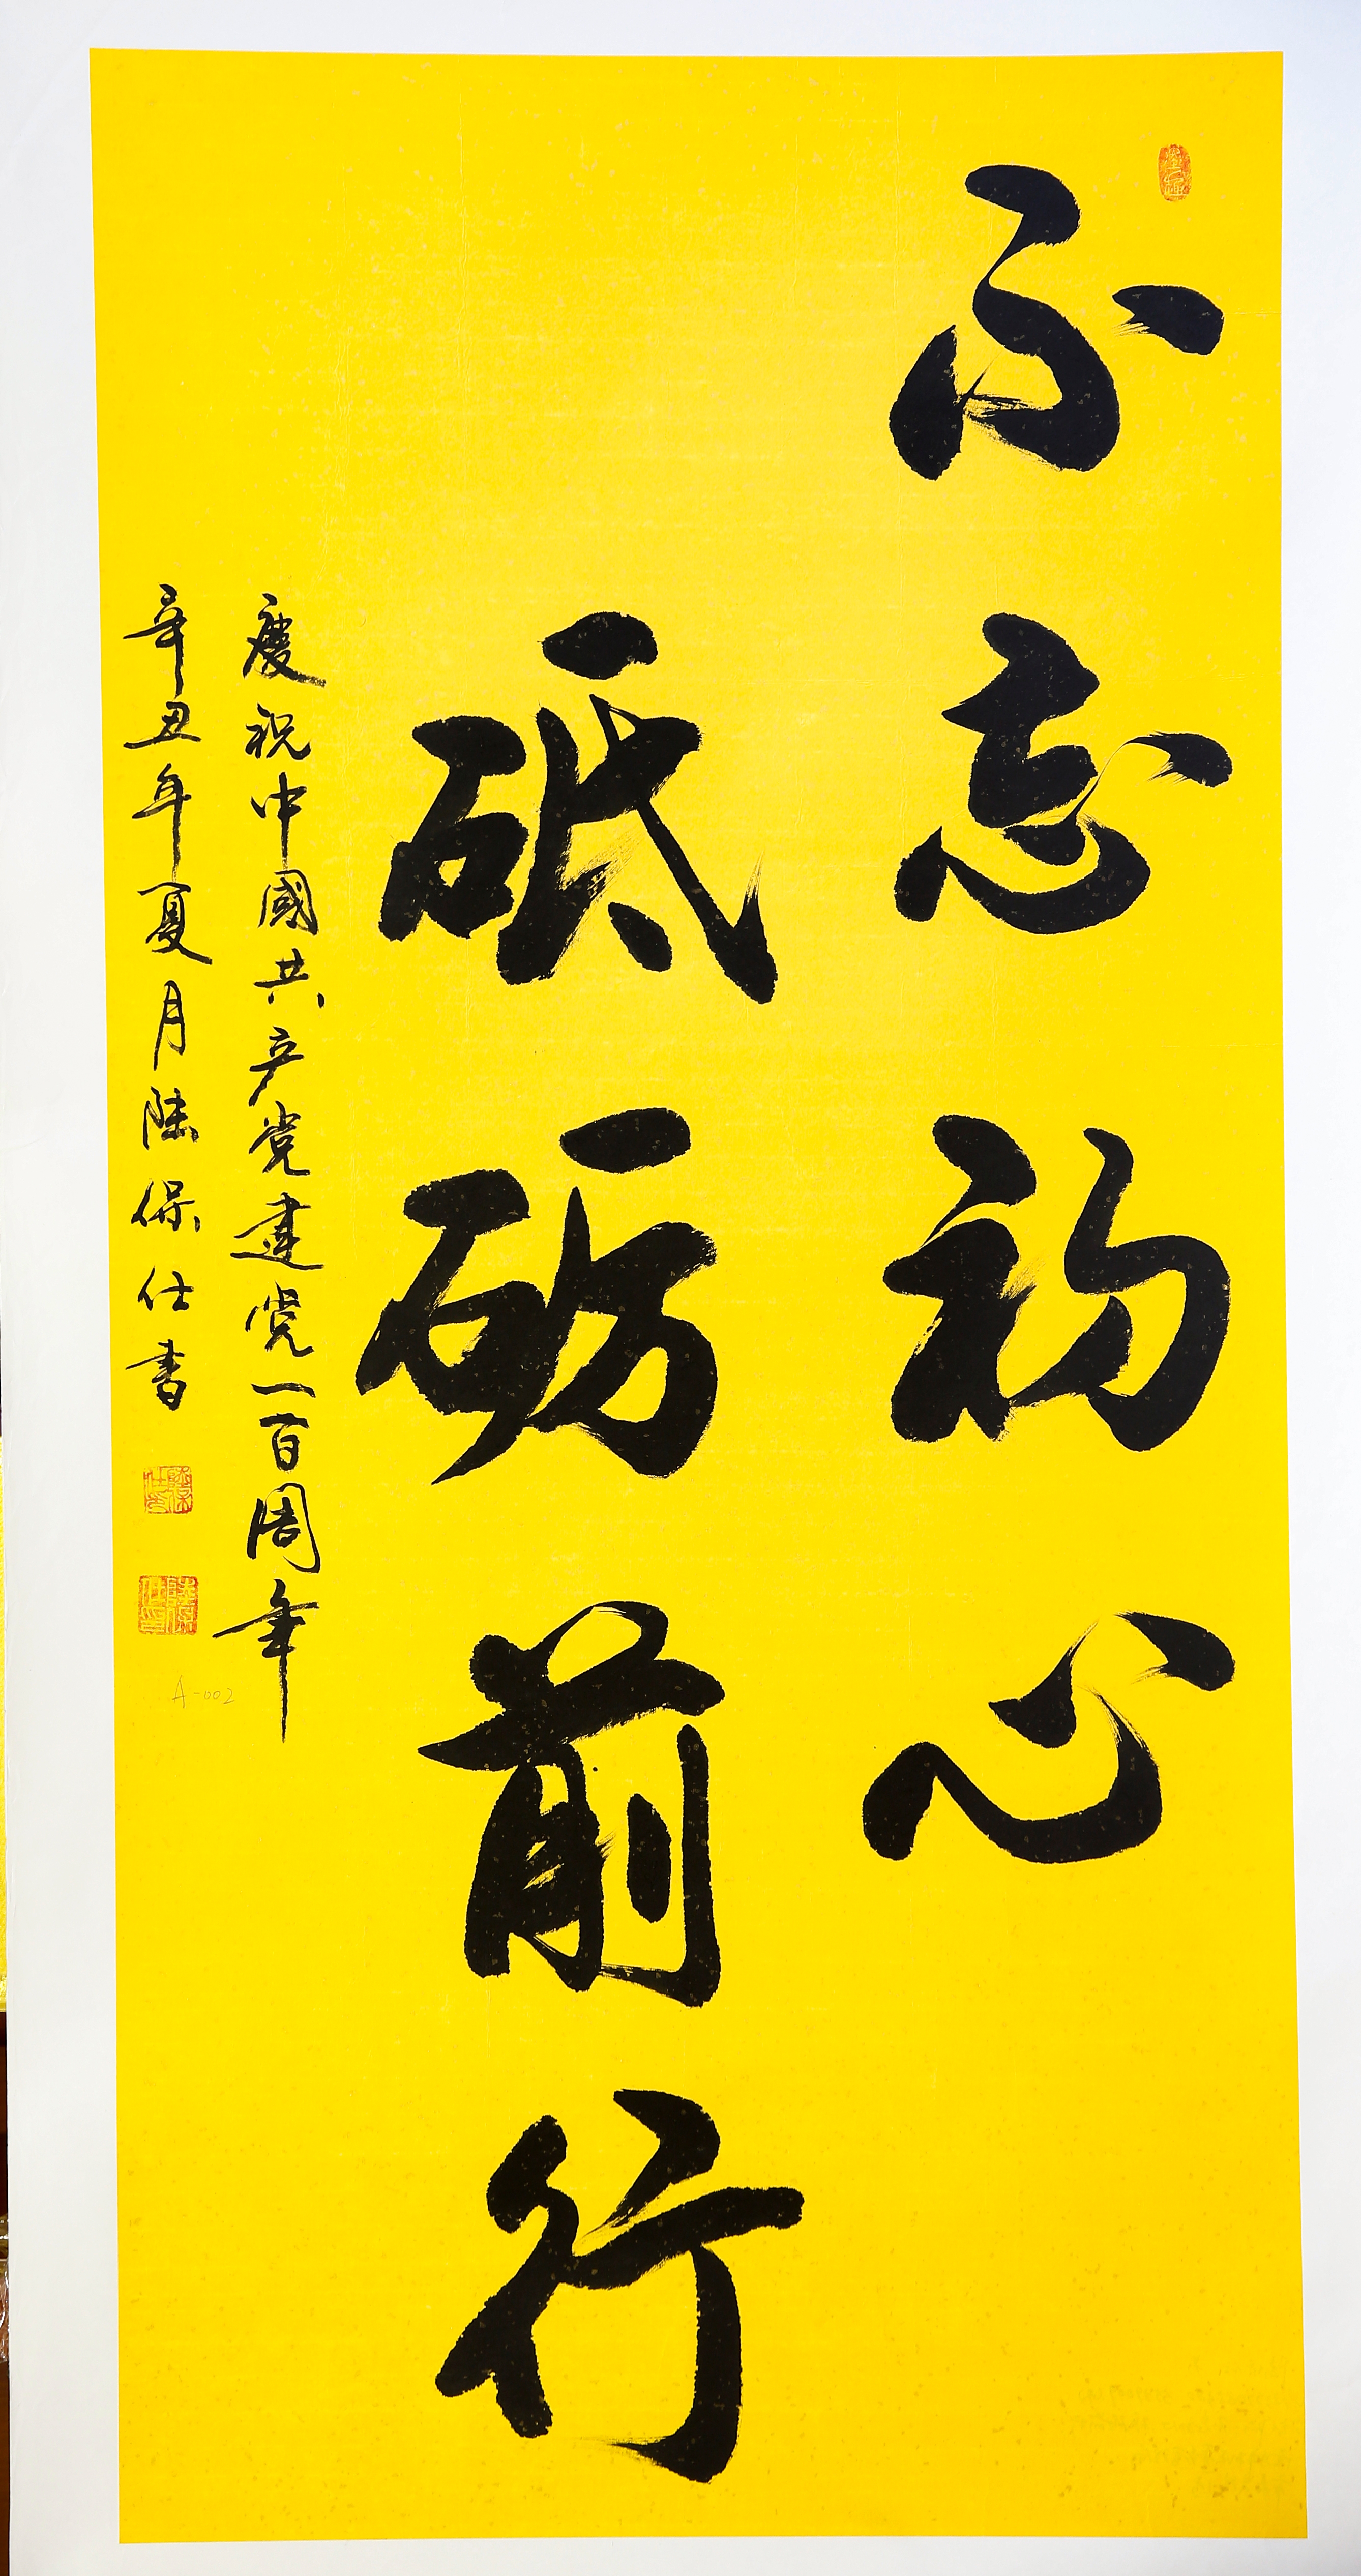 不忘初心
砥砺前行
慶祝中國共产党建党一百周年
辛丑年夏月陆保仕書
A-002